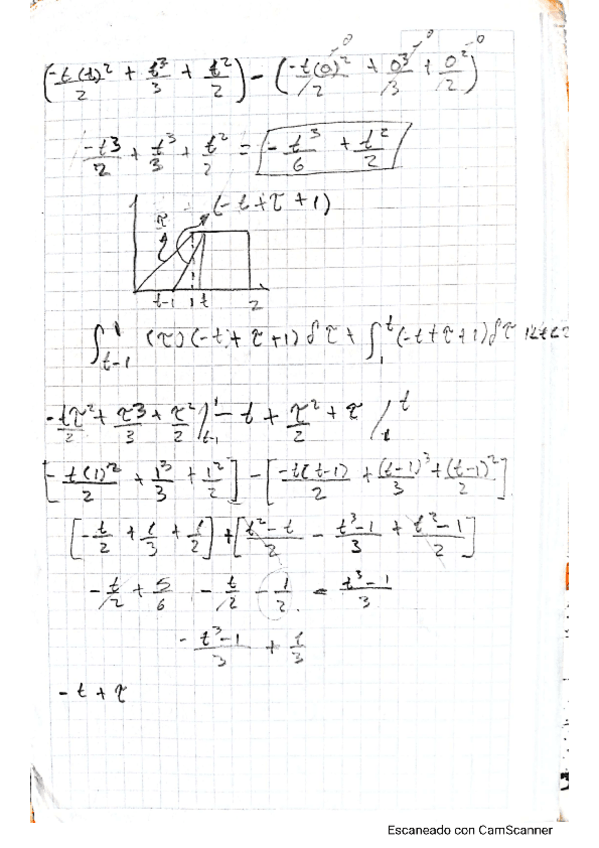 (-t(t)²/2 + t³/3 + t²/2) - (-t(0)²/2 + 0³/3 + 0²/2) -0 -0 -0
-t3/2 + t³/3 + t²/2 = - t³/6 + t²/2
τ (-t + τ + 1)
t-1 1 t 2
∫ t-1 1 (τ)(-t + τ + 1) δτ + ∫ 1 t (-t + τ + 1) δτ 1<t<2
-tτ²/2 + τ3/3 + τ²/2 / 1 t-1 - t + τ²/2 + τ / t
[-t(1)²/2 + 1³/3 + 1²/2] - [-t(t-1)/2 + (t-1)³/3 + (t-1)²/2]
[-t/2 + 1/3 + 1/2] + [t²-t/2 - t³-1/3 + t²-1/2]
-t/2 + 5/6 - t/2 - 1/2 = t³-1/3
- t³-1/3 + 1/3
- t + τ
Escaneado con CamScanner